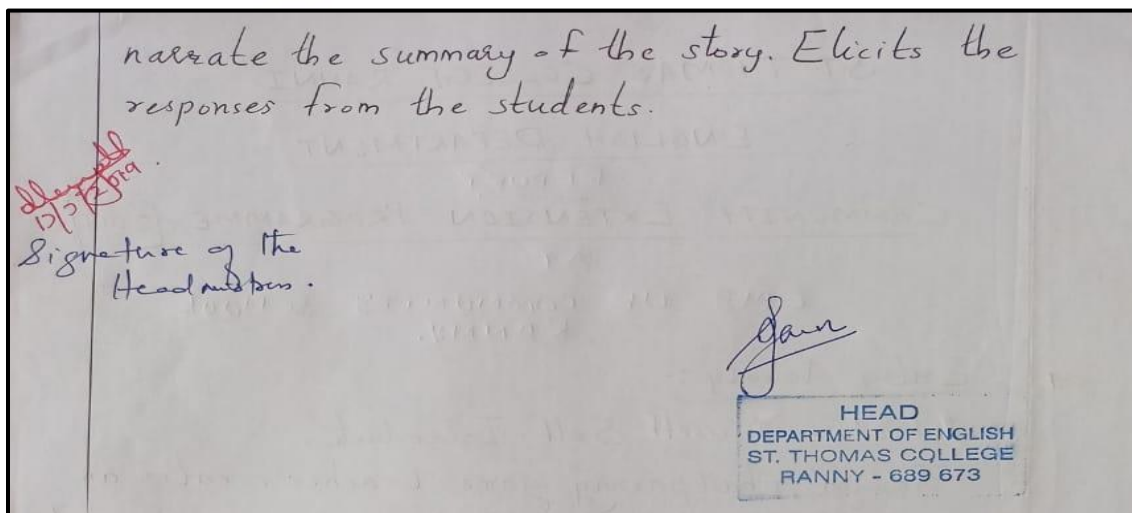 narrate the summary of the story. Elicits the
responses from the students.
Signature of the
Headmistress.
HEAD
DEPARTMENT OF ENGLISH
ST. THOMAS COLLEGE
RANNY - 689 673